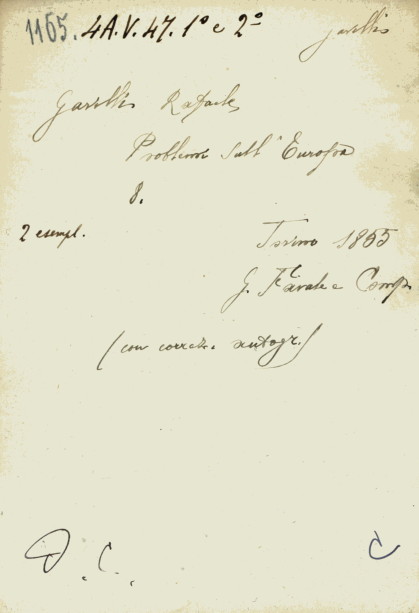 1165. 4A.V.47. 1º e 2º Garillis
Garillis Rafaele
Problemi sull' Europa
8.
2 esempl.
Torino 1865
G. Favale e Comp.
(con correz. autogr.)
D. C. C